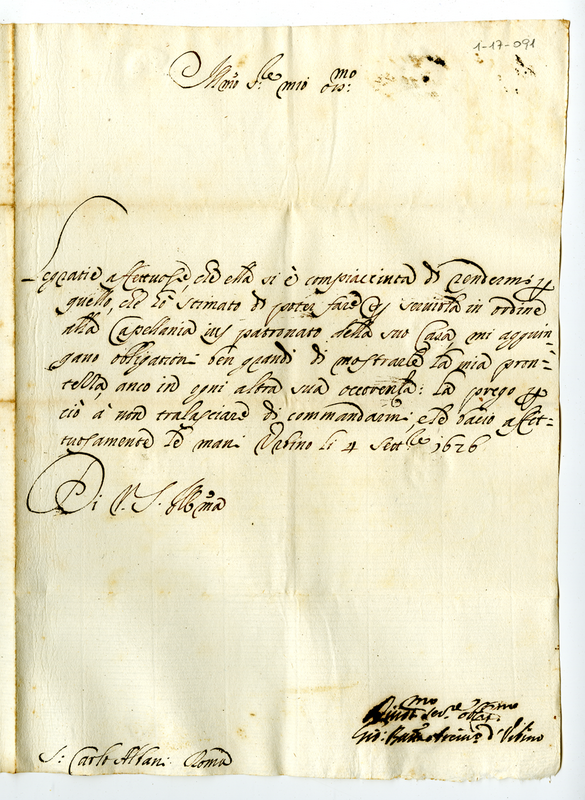 1-17-091
Illmo Sre mio osmo:
Le gratie affettuose, che ella si è compiacciuta di rendermi p
quello, che hò stimato di poter fare in servirla in ordine
alla Capellania ius patronato della sua Casa mi aggiun-
gano obligationi ben grandi di mostrarle la mia pron-
tezza, anco in ogni altra sua occorrenza: la prego p
ciò à non tralasciare di commandarmi, e le bacio affet-
tuosamente le mani. Urbino li 4 Settbre 1626
Di V. S. Illma
Servre
Gio: Batta d'Urbino
S: Carlo Albani Roma